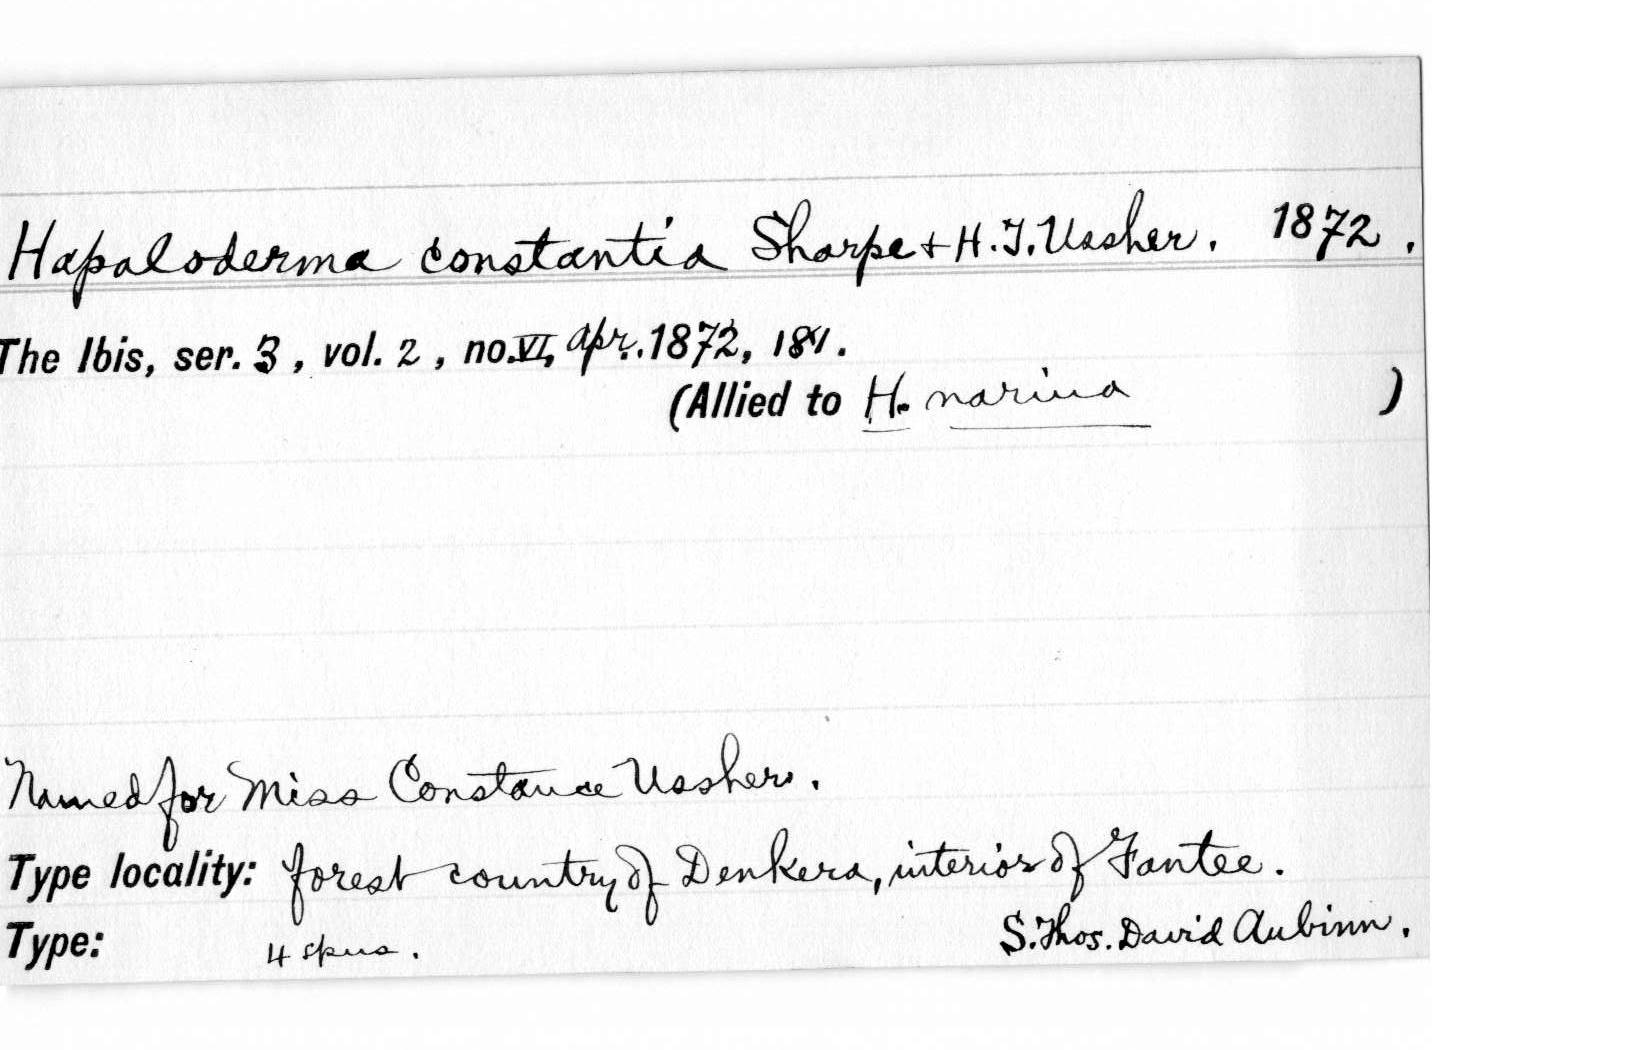 Hapaloderma constantia Sharpe + H.T. Ussher. 1872.
The Ibis, ser. 3, vol. 2, no. VI, Apr. 1872, 181.
(Allied to H. narina )
Named for Miss Constance Ussher.
Type locality: forest country of Denkera, interior of Fantee.
Type: 4 spns. S. Thos. David Aubinn.